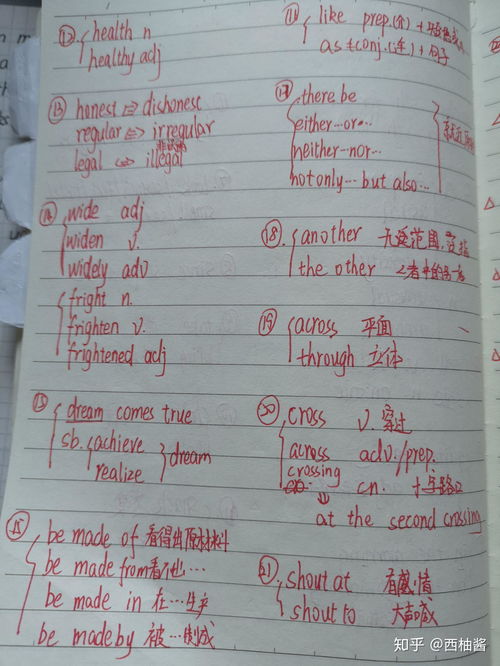 ⑫ health n
healthy adj
⑬ honest ⇔ dishonest
regular ⇔ irregular
非法的
legal ⇔ illegal
⑭ wide adj
widen v.
widely adv
fright n.
frighten v.
frightened adj
dream comes true
sb. achieve
realize dream
⑮ be made of 看得出原材料
be made from 看不出…
be made in 在…生产
be made by 被…制成
like prep.(介) +
as +conj.(连) + 句子
⑰ there be
either…or…
neither…nor…
not only… but also…
就近原则
⑱ another 无范围,
the other 2者中的另一个
⑲ across 平面
through 立体
⑳ cross v. 穿过
across adv./prep.
crossing cn. 十字路口
⇓
at the second crossing
㉑ shout at 有感情
shout to 大声喊
知乎 @西柚酱